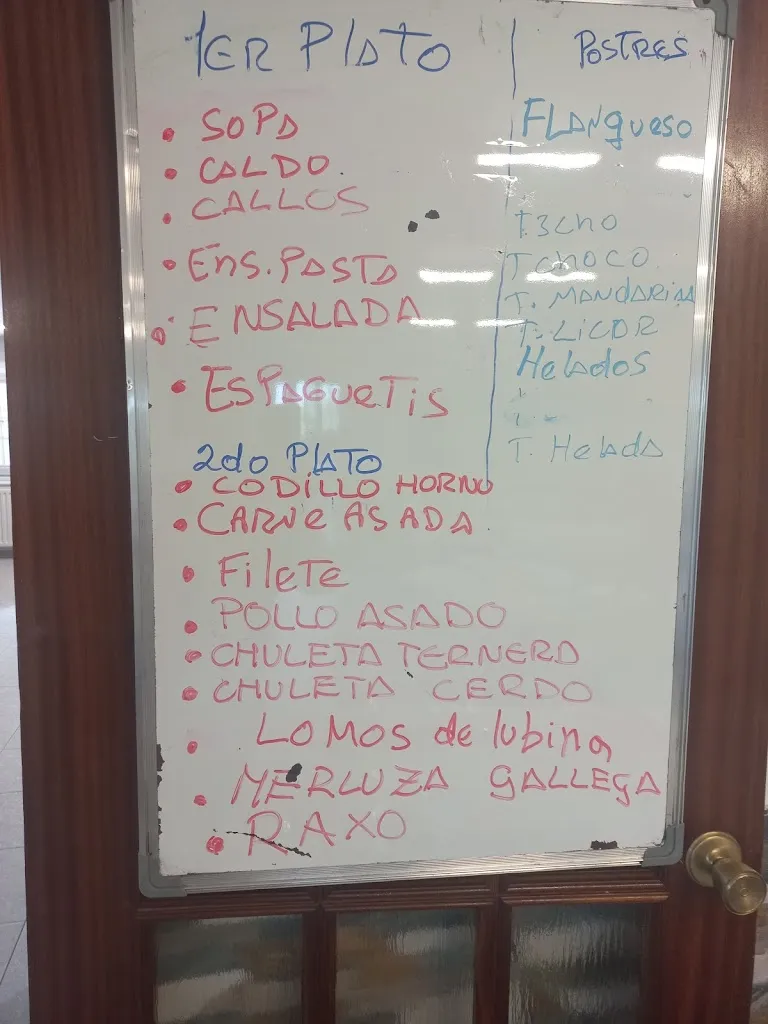 1ER PLATO
SOPA
CALDO
CALLOS
ENS. PASTA
ENSALADA
ESPAGUETIS
2do PLATO
CODILLO HORNO
CARNE ASADA
FILETE
POLLO ASADO
CHULETA TERNERA
CHULETA CERDO
LOMOS de lubina
MERLUZA GALLEGA
RAXO
POSTRES
FLANqueso
T. 3CHO
T CHOCO
T. MANDARINA
T. LICOR
Helados
T. Helada